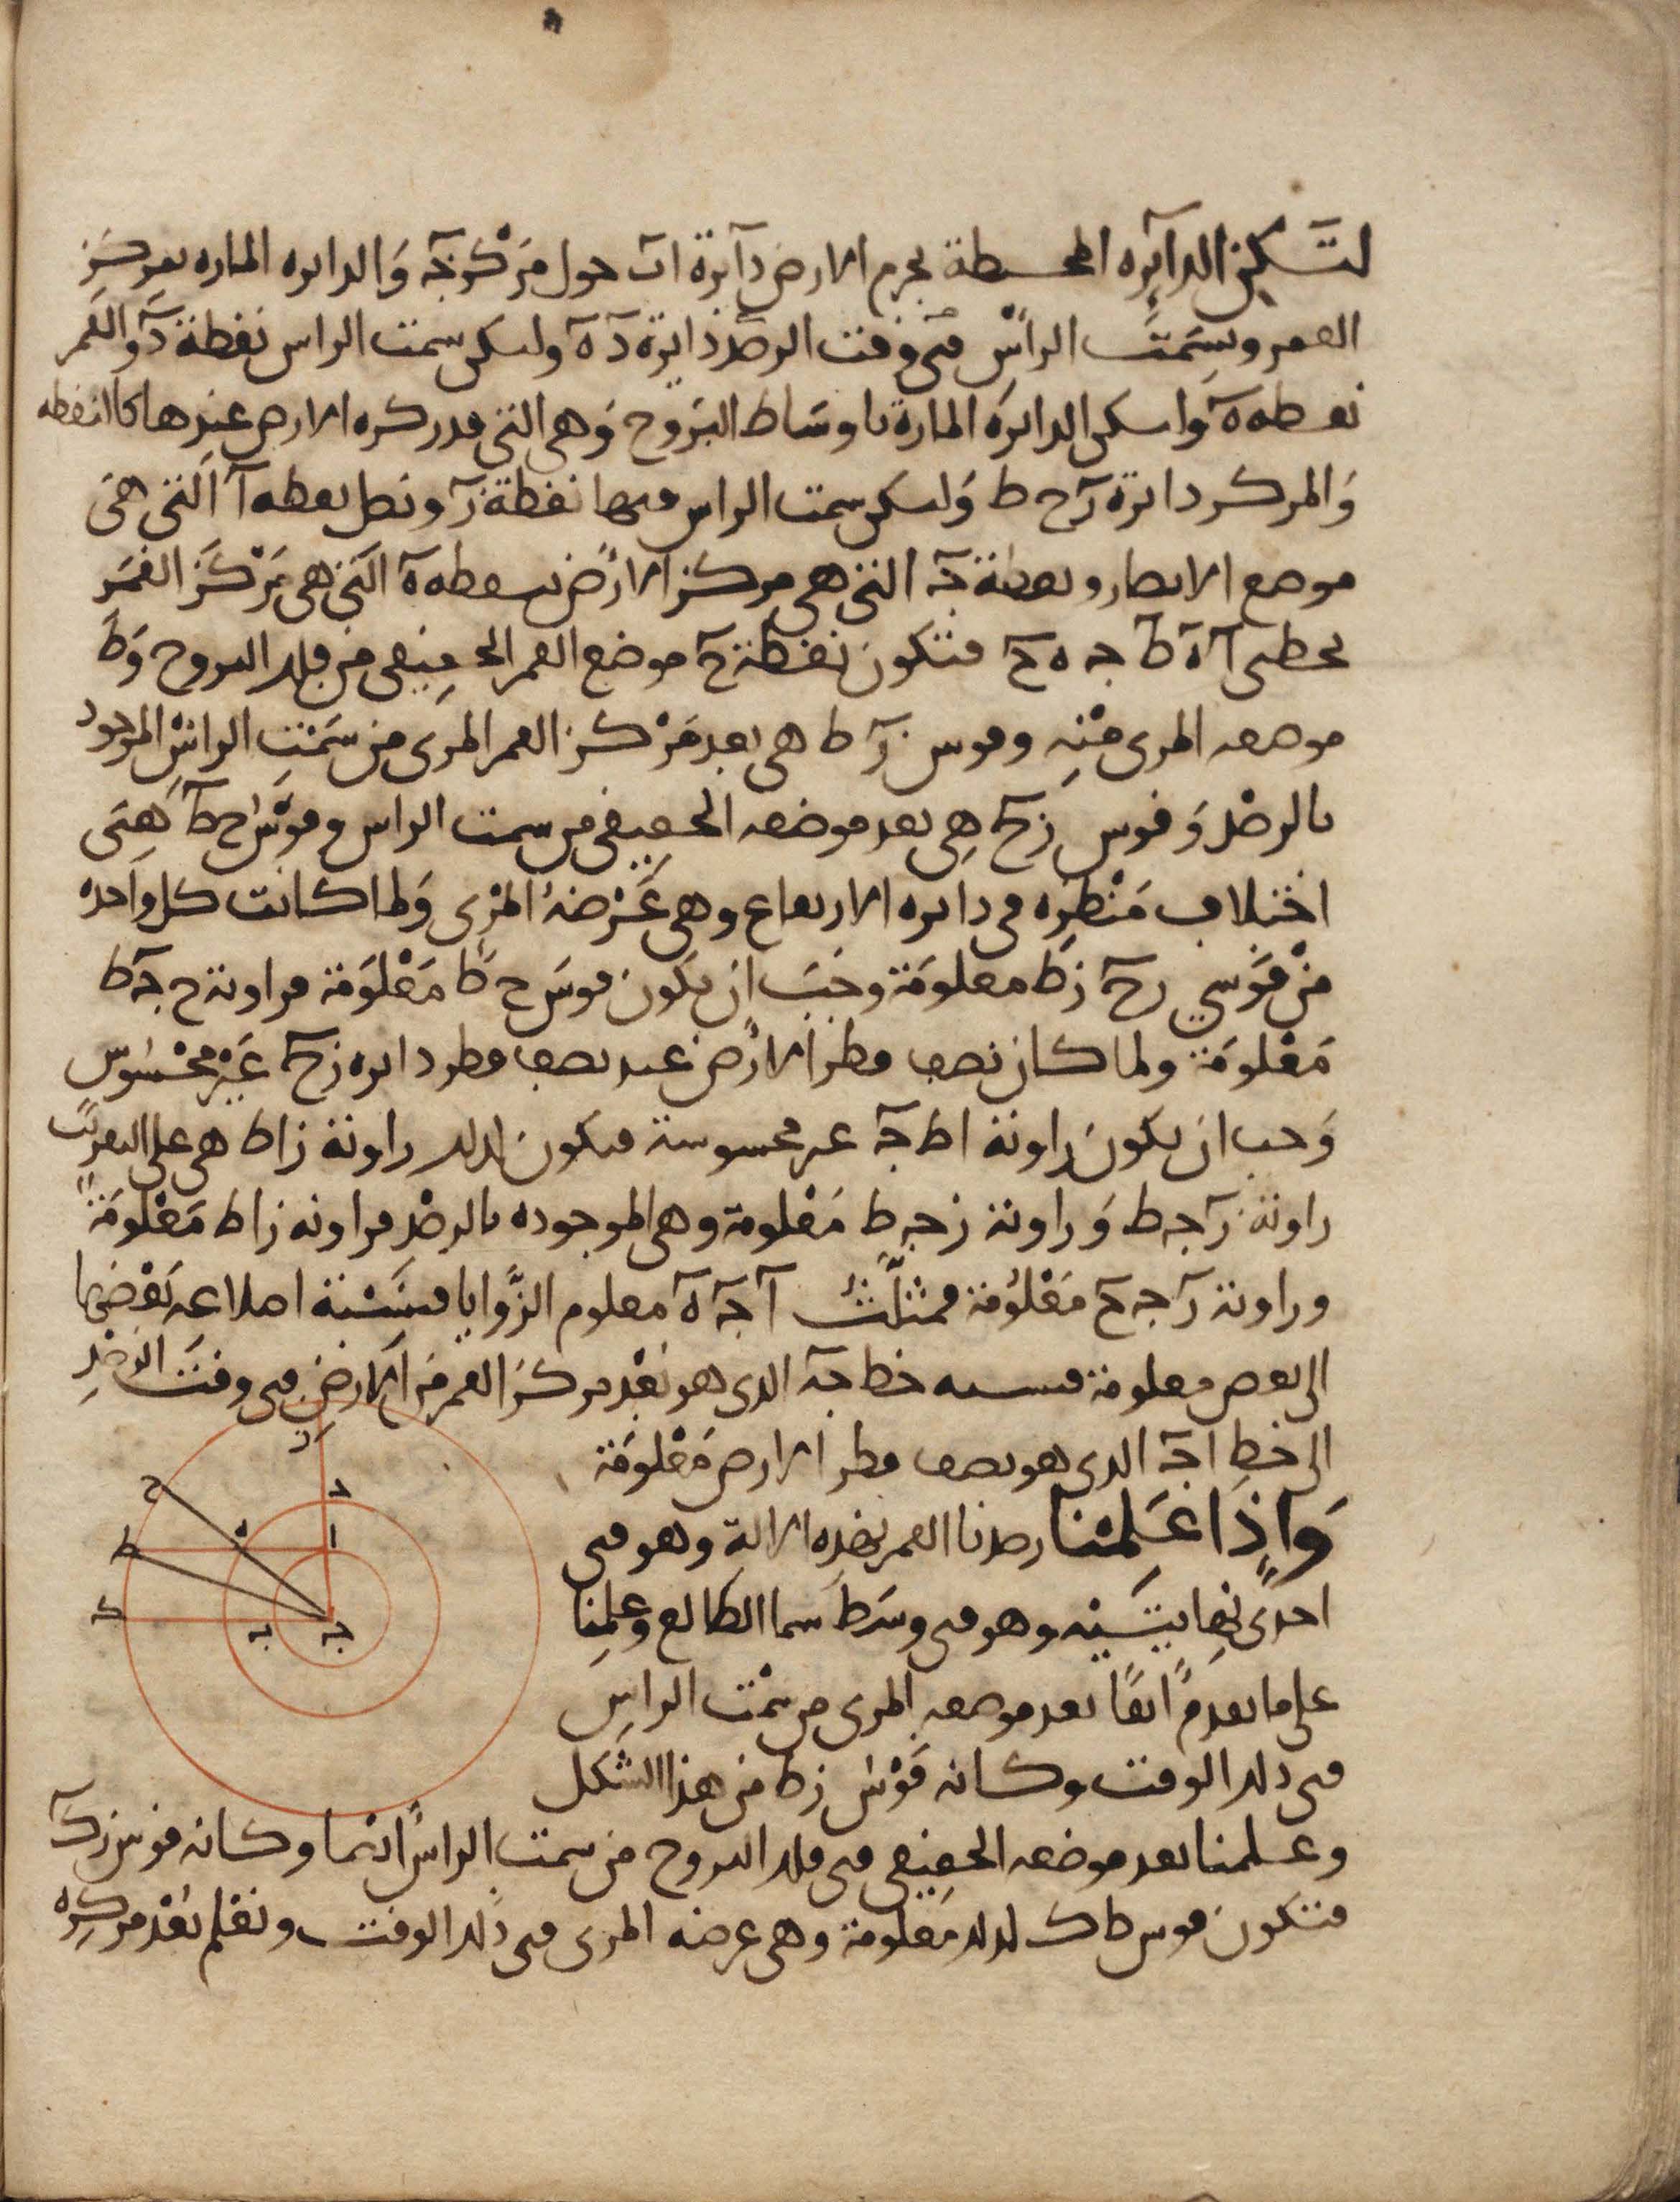 لتكن الدآئره المحيطة بجرم الارض دآئرة اب حول مركز جه والدائره الماره بمركز
القمر وبسمت الراس في وقت الرصد دائرة ده وليكن سمت الراس نقطة د والقمر
نقطه ه ولتكن الدائره المارة باوساط البروج وهي التي قدر كره الارض عندها كالنقطه
والمركز دائرة زح ط وليكن سمت الراس منها نقطة ز ونصل نقطه آ التي هي
موضع الابصار ونقطة جه التي هي مركز الارض بنقطه ه التي هي مركز القمر
بخطي آ ه ط جه ه ح فتكون نقطة ح موضع القمر الحقيقي من فلك البروج وط
موضعه المرى منه وقوس ز ط هي بعد مركز القمر المرى من سمت الراس الموجود
بالرصد وقوس زح هي بعد موضعه الحقيقي من سمت الراس وقوس ح ط هي
اختلاف منظره في دائره الارتفاع وهي عرضه المرى ولما كانت كل واحده
من قوسي زح زط معلومة وجب ان يكون قوس ح ط معلومة فزاوية ح جه ط
معلومة ولما كان نصف قطر الارض عند نصف قطر دائره زح غير محسوس
وجب ان يكون زاوية اط جه غير محسوسة فيكون لذلك زاوية زاط هي على التقريب
زاوية ز جه ط وزاوية ز جه ط معلومة وهي الموجوده بالرصد فزاويه زاط معلومة
وزاوية ز جه ح معلومة فمثلث آ جه ه معلوم الزوايا فنسبة اضلاعه بعضها
الى بعض معلومة فنسبه خط جه الذي هو بعد مركز القمر من الارض في وقت الرصد
الى خط اجه الذي هو نصف قطر الارض معلومة
واذا علمنا رصدنا القمر بهذه الالة وهو في
احدى نهايتيه وهو في وسط سما الطالع وعلمنا
على ما تقدم انفا بعد موضعه المرى من سمت الراس
في ذلك الوقت وكانه قوس زط من هذا الشكل
وعلمنا بعد موضعه الحقيقي في فلك البروج من سمت الراس ايضا وكانه قوس زك
فتكون قوس ط ك لذلك معلومة وهي عرضه المرى في ذلك الوقت ونعلم بعد مركزه
ز
ح
د
ه
ا
ط
ك
ب
جه